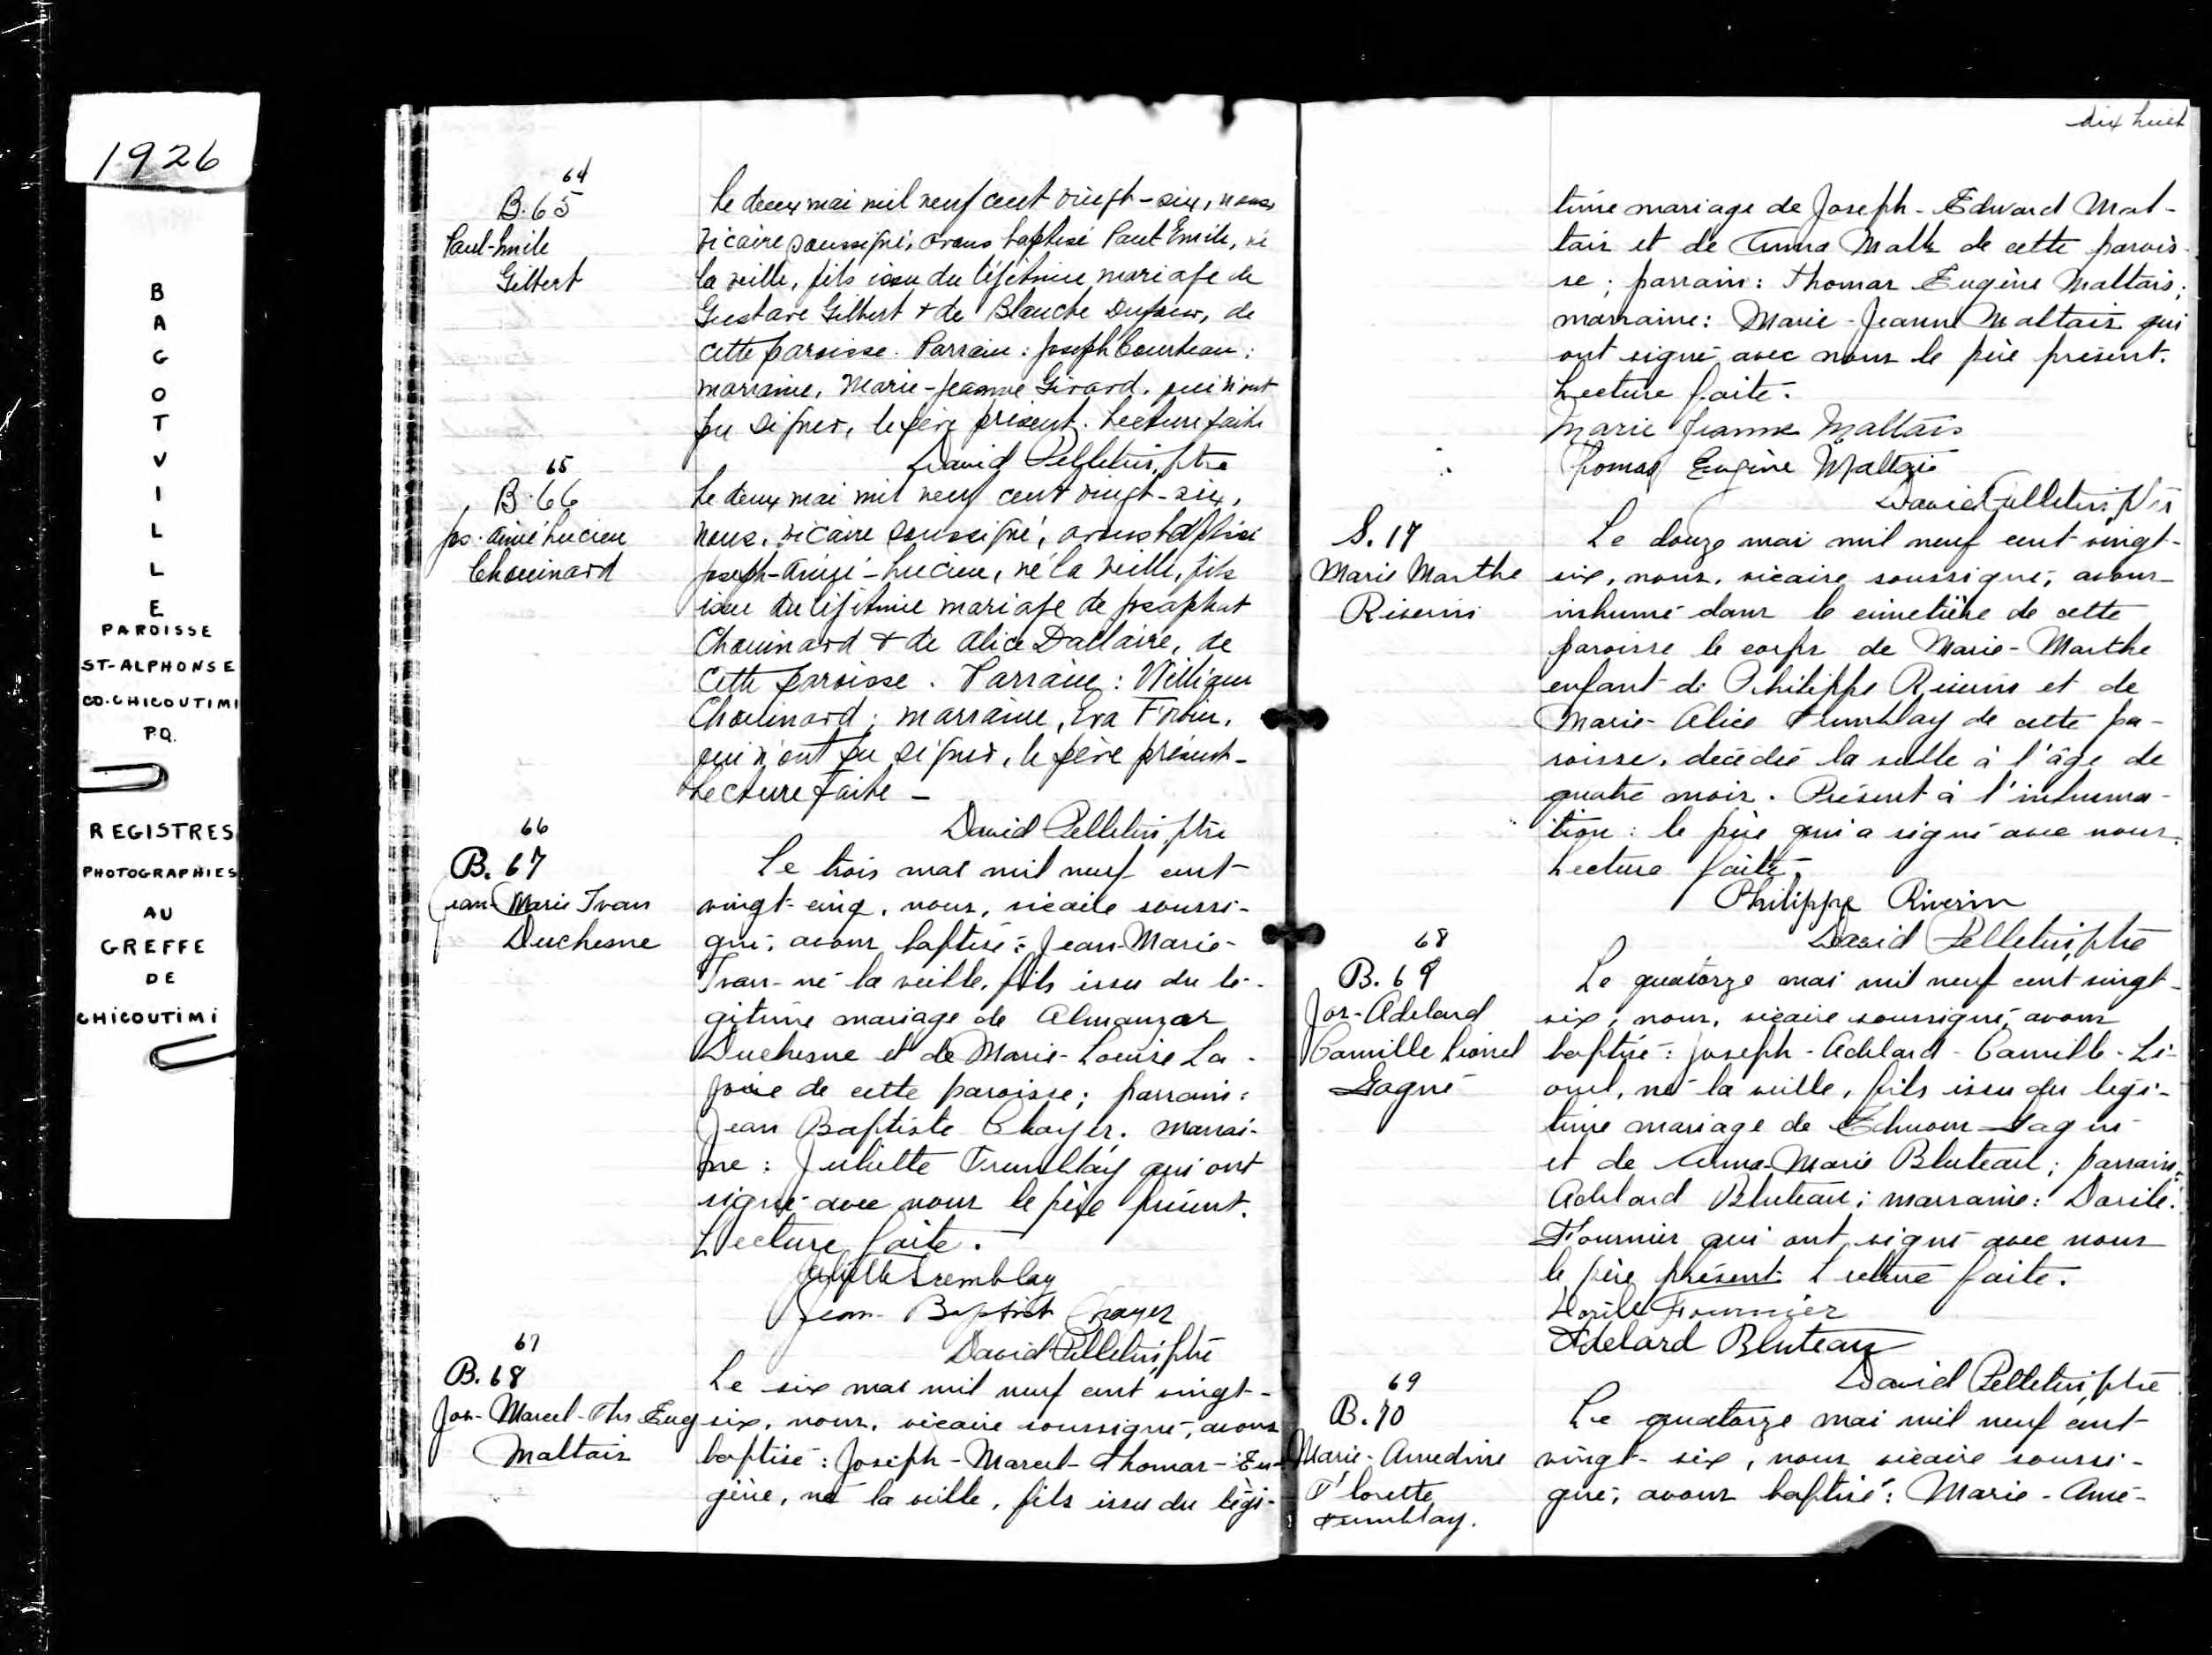 1926
BAGOTVILLE
PAROISSE
ST-ALPHONSE
CO. CHICOUTIMI
P.Q.
REGISTRES
PHOTOGRAPHIES
AU
GREFFE
DE
CHICOUTIMI
64
B. 65
Paul-Emile
Gilbert
Le deux mai mil neuf cent vingt-six, nous
vicaire soussigné, avons baptisé Paul Emile, né
la veille, fils issu du légitime mariage de
Gustave Gilbert + de Blanche Dufour, de
cette paroisse. Parrain: Joseph
marraine, Marie-Jeanne Girard, qui n'ont
pu signer, le père présent. Lecture faite
David Pelletier, ptre
65
B. 66
Jos. Aimé Lucien
Chouinard
Le deux mai mil neuf cent vingt-six,
nous, vicaire soussigné, avons baptisé
Joseph-Aimé-Lucien, né la veille, fils
issu du légitime mariage de Josaphat
Chouinard + de Alice Dallaire, de
cette paroisse. Parrain: William
Chouinard; marraine, Eva Fortin,
qui n'ont pu signer, le père présent-
Lecture faite -
David Pelletier, ptre
66
B. 67
Jean-Marie Ivan
Duchesne
Le trois mai mil neuf cent
vingt-cinq, nous, vicaire soussi-
gné, avons baptisé: Jean-Marie-
Ivan né la veille, fils issu du lé-
gitime mariage de Almanzar
Duchesne et de Marie-Louise La-
joie de cette paroisse; parrain:
Jean Baptiste Chayer. marrai-
ne: Juliette Tremblay qui ont
signé avec nous le père présent.
Lecture faite.
Juliette Tremblay
Jean-Baptist Chayer
David Pelletier, ptre
67
B. 68
Jos-Marcel-Ths Eug
Maltais
Le six mai mil neuf cent vingt-
six, nous, vicaire soussigné, avons
baptisé: Joseph-Marcel-Thomas-Eu-
gène, né la veille, fils issu du légi-
dix huit
time mariage de Joseph-Edward Mal-
tais et de Anna Maltais de cette parois-
se; parrain: Thomas Eugène Maltais;
marraine: Marie-Jeanne Maltais qui
ont signé avec nous le père présent.
Lecture faite.
Marie Jeanne Maltais
Thomas Eugène Maltais
David Pelletier, ptre
S. 17
Marie Marthe
Riverin
Le douze mai mil neuf cent vingt-
six, nous, vicaire soussigné, avons
inhumé dans le cimetière de cette
paroisse le corps de Marie-Marthe
enfant de Philippe Riverin et de
Marie-Alice Tremblay de cette pa-
roisse, décédée la veille à l'âge de
quatre mois. Présent à l'inhuma-
tion: le père qui a signé avec nous.
Lecture faite.
Philippe Riverin
David Pelletier, ptre
68
B. 69
Jos-Adelard
Camille Lionel
Gagné
Le quatorze mai mil neuf cent vingt-
six, nous, vicaire soussigné, avons
baptisé: Joseph-Adelard-Camille-Li-
onel, né la veille, fils issu du légi-
time mariage de Gagné
et de Anna-Marie Bluteau; parrain:
Adelard Bluteau; marraine: Dorile
Fournier qui ont signé avec nous
le père présent. Lecture faite.
Dorile Fournier
Adelard Bluteau
David Pelletier, ptre
69
B. 70
Marie-Amedine
Florette
Tremblay.
Le quatorze mai mil neuf cent
vingt-six, nous vicaire soussi-
gné, avons baptisé: Marie-Amé-